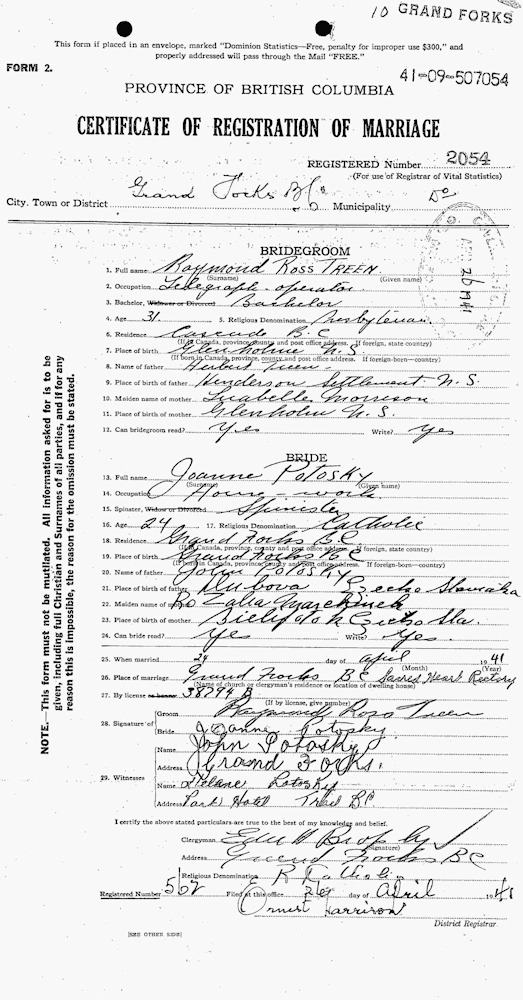 10 GRAND FORKS
This form if placed in an envelope, marked "Dominion Statistics—Free, penalty for improper use $300," and
properly addressed will pass through the Mail "FREE."
FORM 2.
41-09-507054
PROVINCE OF BRITISH COLUMBIA
CERTIFICATE OF REGISTRATION OF MARRIAGE
REGISTERED Number 2054
(For use of Registrar of Vital Statistics)
City, Town or District Grand Forks B.C. Municipality Do
BRIDEGROOM
1. Full name Raymond Ross TREEN
(Surname) (Given name)
2. Occupation Telegraph operator
3. Bachelor, Widower or Divorced Bachelor
4. Age 31. 5. Religious Denomination Presbyterian.
6. Residence Cascade B.C
(If in Canada, province, county and post office address. If foreign, state country)
7. Place of birth Glenholme N.S.
(If born in Canada, province, county and post office address. If foreign-born—country)
8. Name of father Herbert Treen.
9. Place of birth of father Henderson Settlement N.S.
10. Maiden name of mother Isabelle Morrison
11. Place of birth of mother Glenholm N.S.
12. Can bridegroom read? Yes Write? Yes
BRIDE
13. Full name Joanne POTOSKY
(Surname) (Given name)
14. Occupation House-work
15. Spinster, Widow or Divorced Spinster
16. Age 24 17. Religious Denomination Catholic
18. Residence Grand Forks B.C
(If in Canada, province, county and post office address. If foreign, state country)
19. Place of birth Grand Forks B C
(If born in Canada, province, county and post office address. If foreign-born—country)
20. Name of father John POTOSKY
21. Place of birth of father
22. Maiden name of mother
23. Place of birth of mother
24. Can bride read? Yes Write? Yes.
25. When married 24 day of April 1941
(Month) (Year)
26. Place of marriage Grand Forks BC Sacred Heart Rectory
(Name of church or clergyman's residence or location of dwelling house)
27. By license or banns 38794 B
(If by license, give number)
28. Signature of Groom Raymond Ross Treen
Bride Joanne Potosky
Name John Potosky
Address Grand Forks.
29. Witnesses
Name Potosky
Address Park Hotel Trail BC
I certify the above stated particulars are true to the best of my knowledge and belief.
Clergyman
(Signature)
Address Grand Forks BC
Religious Denomination R Catholic
Registered Number 562 Filed at this office 26 day of April 1941
Harrison
District Registrar
[SEE OTHER SIDE]
NOTE.—This form must not be mutilated. All information asked for is to be
given, including full Christian and Surnames of all parties, and if for any
reason this is impossible, the reason for the omission must be stated.